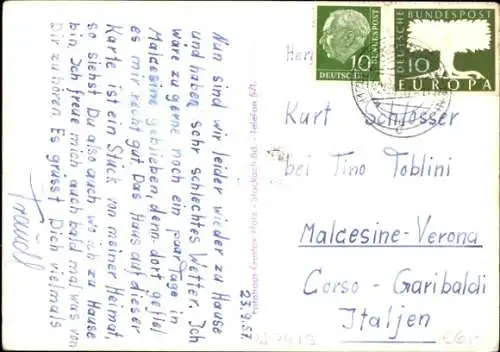 23.9.57
Nun sind wir leider wieder zu Hause
und haben sehr schlechtes Wetter. Ich
wäre zu gerne noch ein paar Tage in
Malcesine geblieben, denn dort gefiel
es mir recht gut. Das Haus auf dieser
Karte ist ein Stück von meiner Heimat,
so siehst Du also auch wo ich zu Hause
bin. Ich freue mich auch bald mal was von
Dir zu hören. Es grüsst Dich vielmals
Traudl
10
DEUTSCHE
BUNDESPOST
DEUTSCHE
BUNDESPOST
10
EUROPA
Herrn
Kurt Schlosser
bei Tino Toblini
Malcesine-Verona
Corso-Garibaldi
Italien